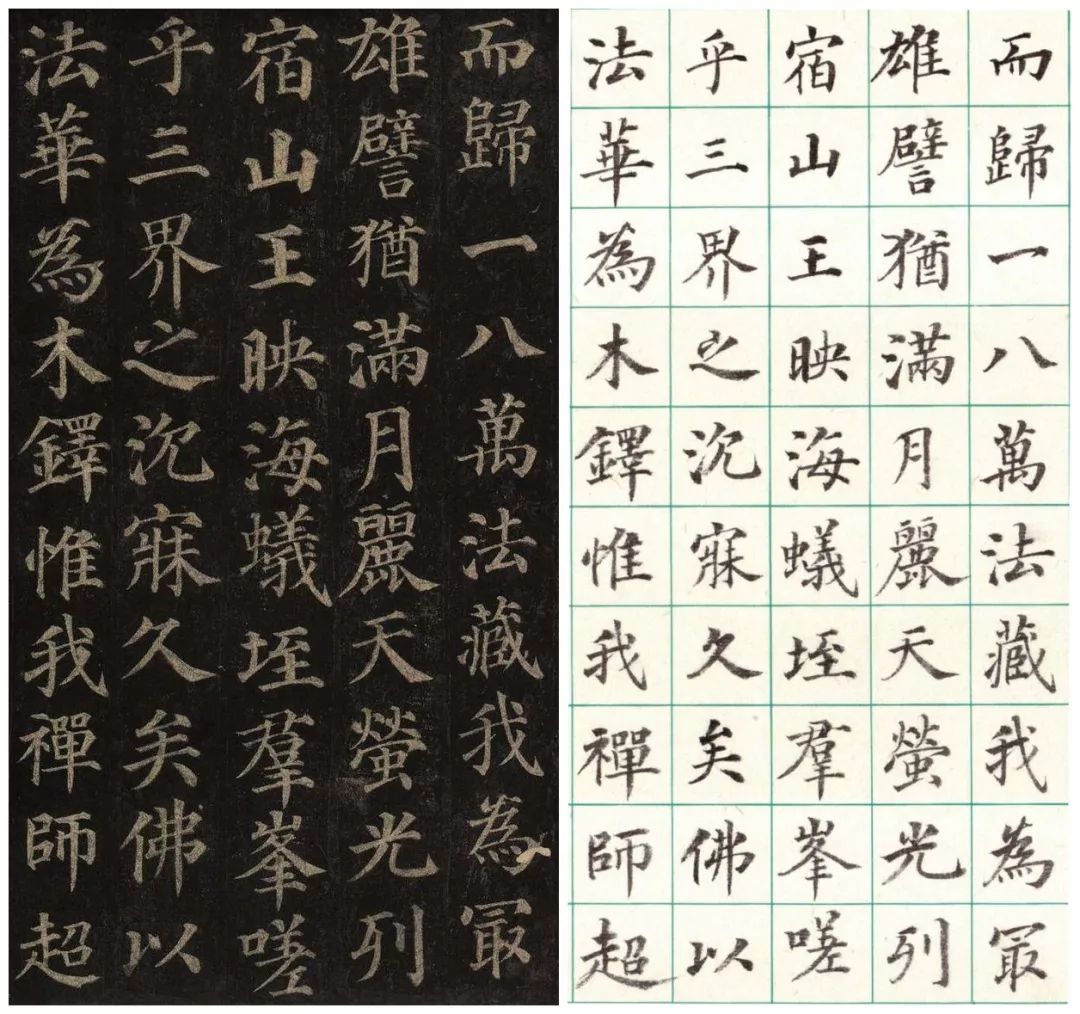 而歸一八萬法藏我為冣
雄譬猶滿月麗天螢光列
宿山王映海蟻垤羣峯嗟
乎三界之沉寐久矣佛以
法華為木鐸惟我禪師超
而歸一八萬法藏我為冣
雄譬猶滿月麗天螢光列
宿山王映海蟻垤羣峯嗟
乎三界之沉寐久矣佛以
法華為木鐸惟我禪師超